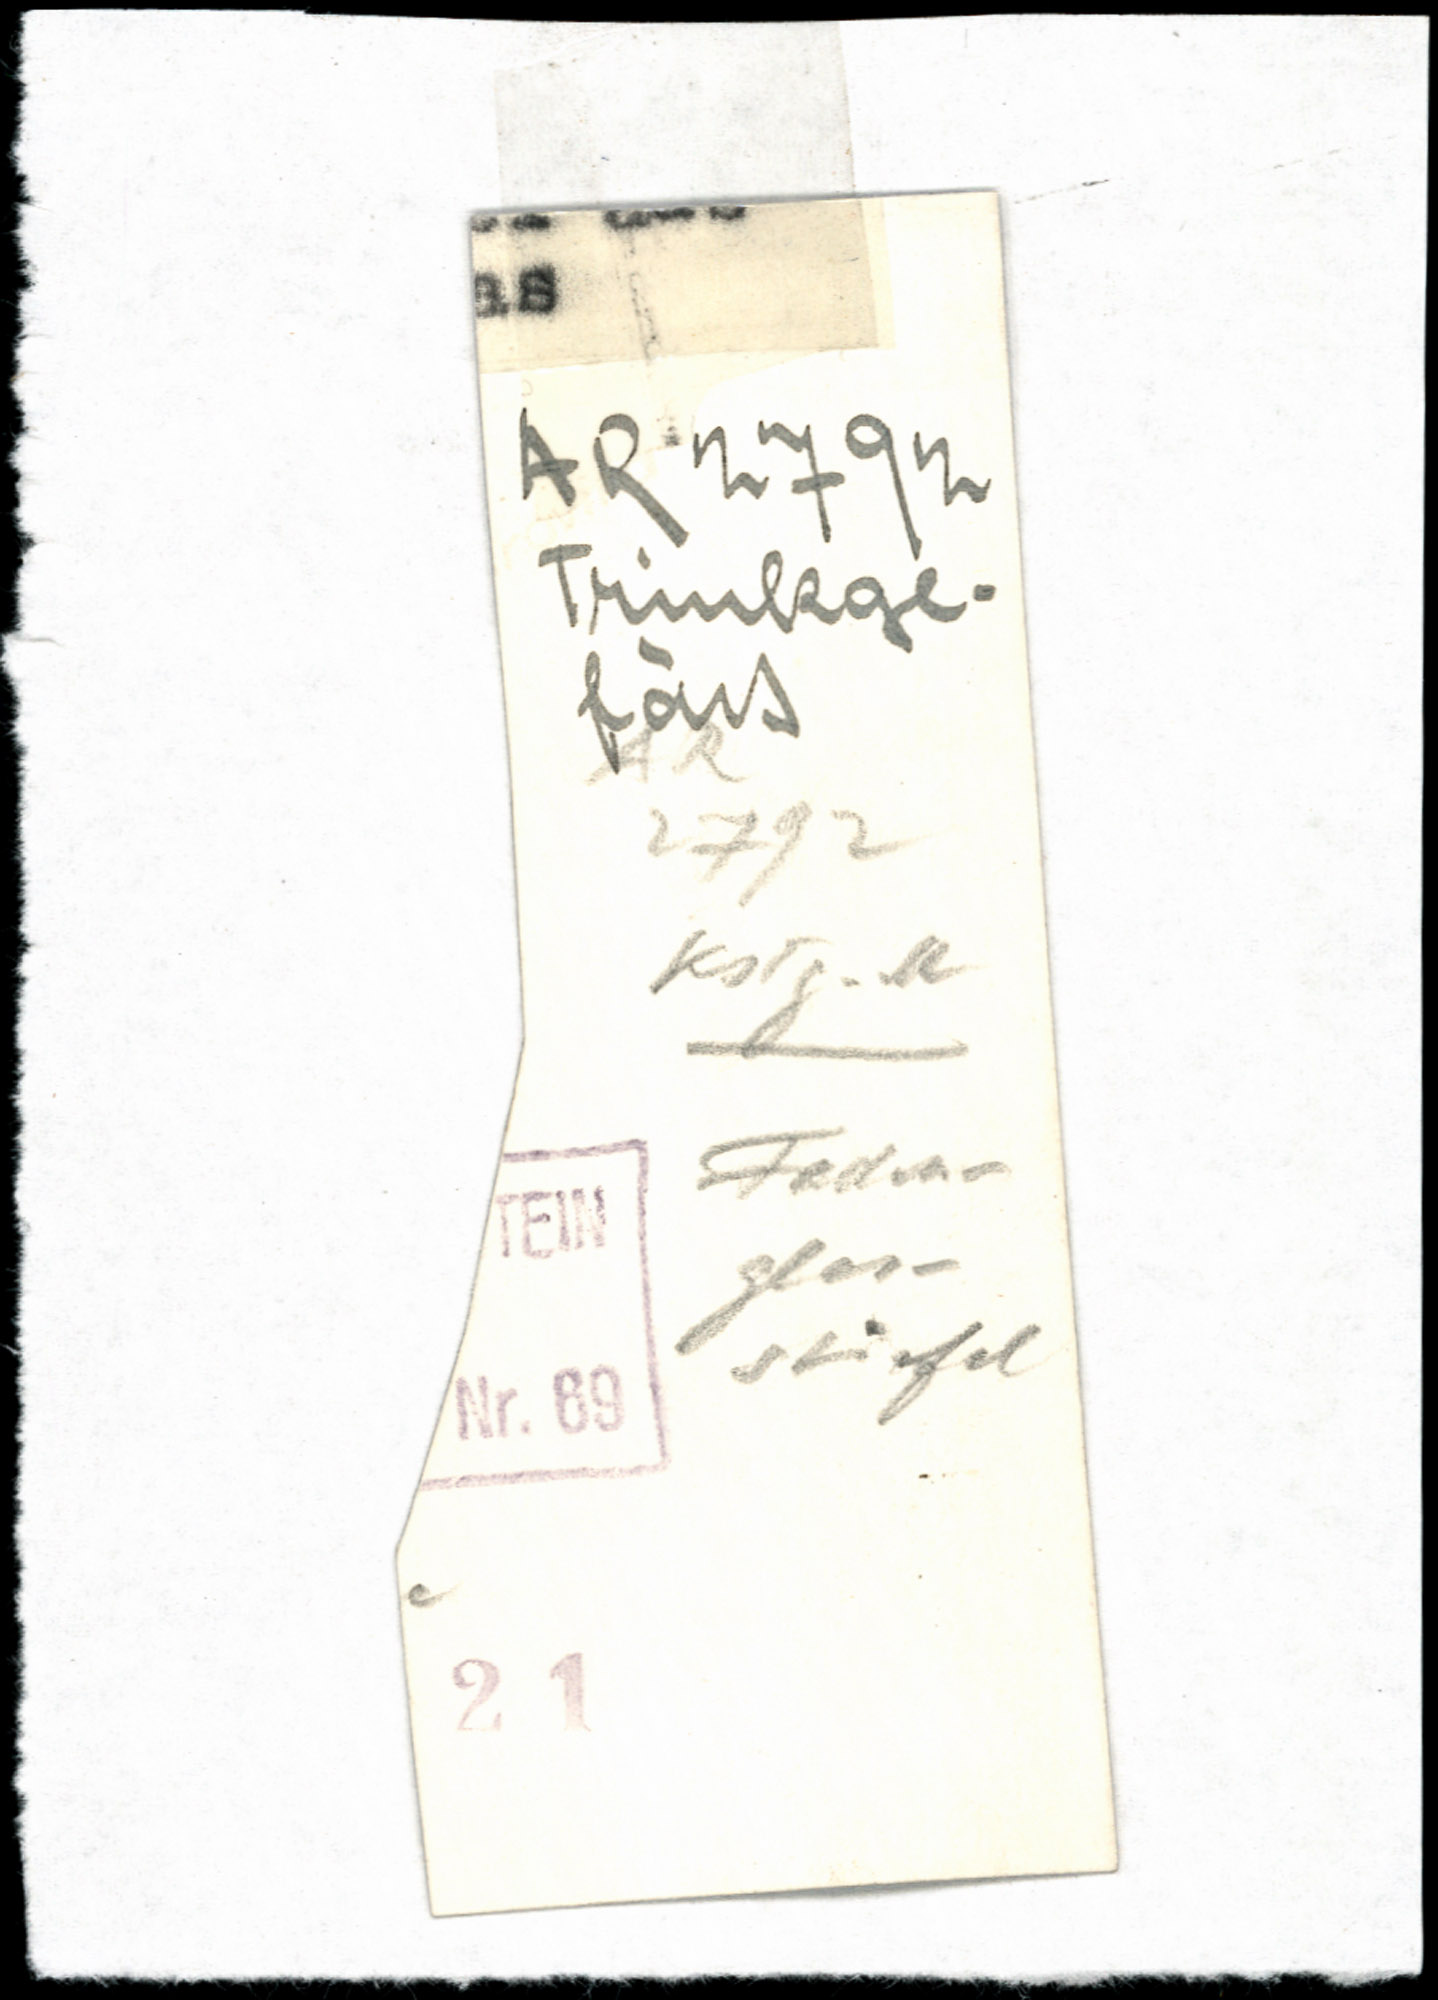 as
AR 2792
Trinkge-
fäss
AR
2792
Kstg. M
Faden-
glas-
stiefel
TEIN
Nr. 69
e
21